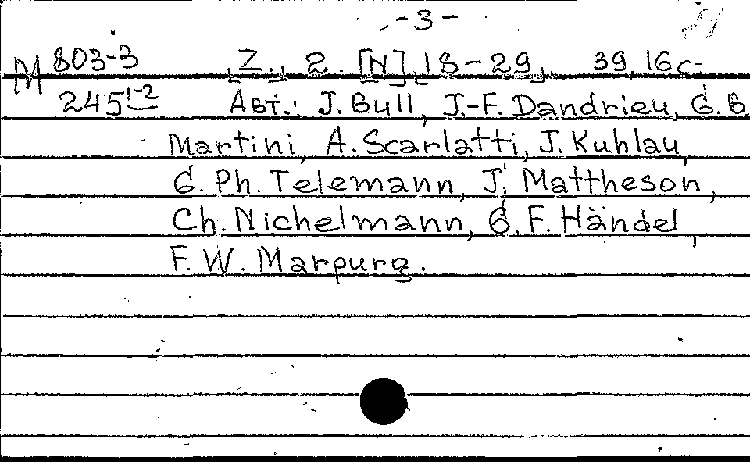 -3-
M 803-3 Z. 2. [N] 18-29. 39,16 c.
245 1-2 Авт.: J. Bull, J.-F. Dandrieu, G. B.
Martini, A. Scarlatti, J. Kuhlau,
G. Ph. Telemann, J. Mattheson,
Ch. Nichelmann, G. F. Händel,
F. W. Marpurg.